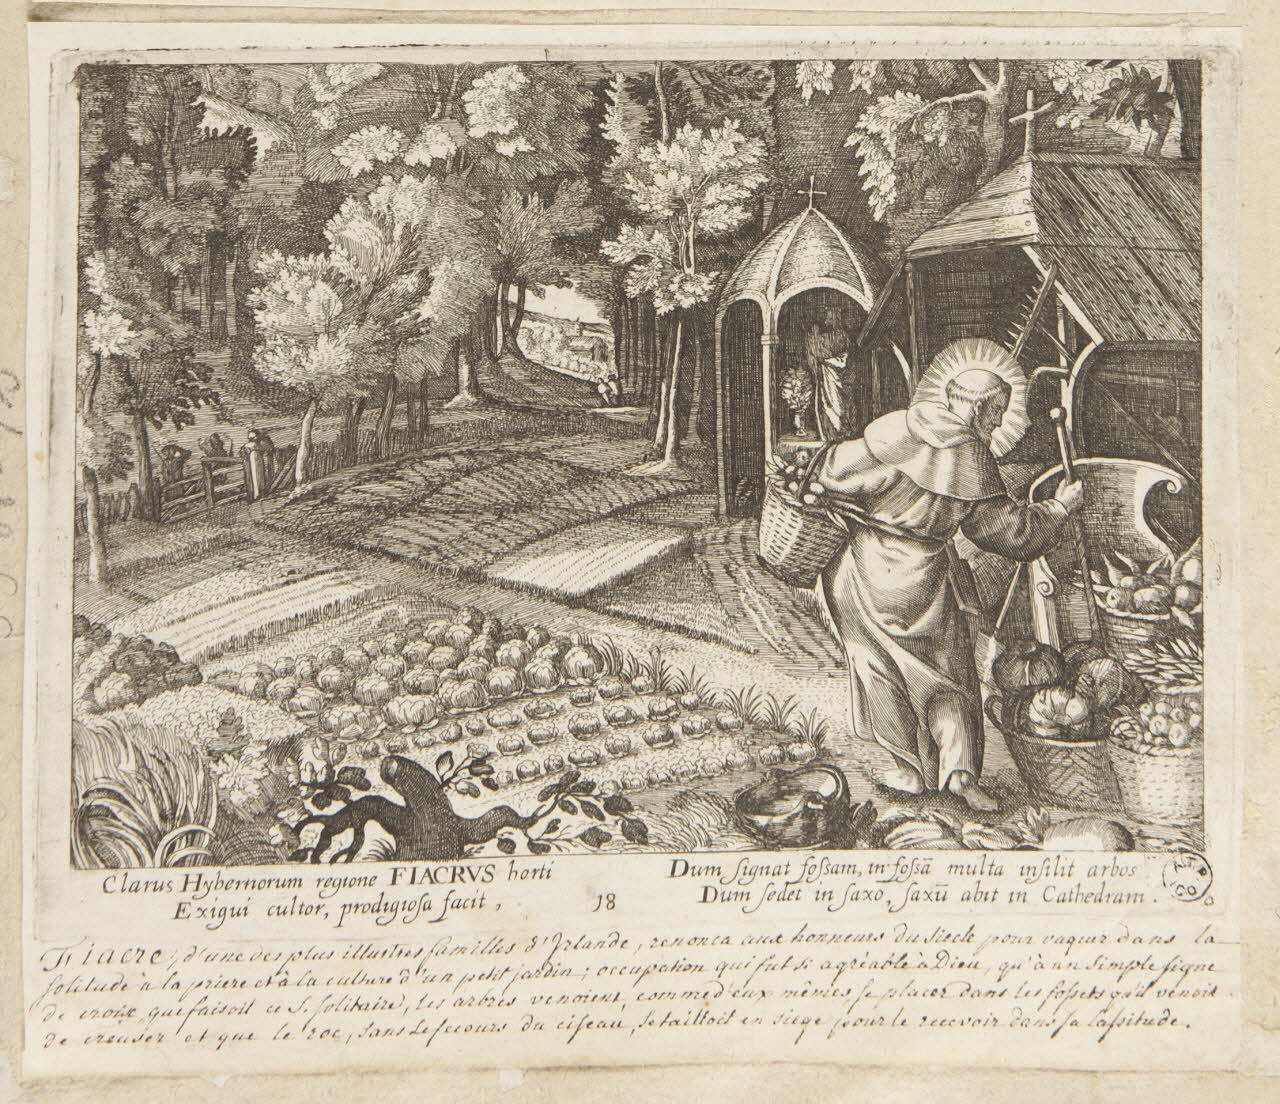 Clarus Hybernorum regione FIACRVS horti
Exigui cultor, prodigiosa facit,
18
Dum signat fossam, in fossā multa insilit arbos
Dum sedet in saxo, saxū abit in Cathedram.
Fiacre, d'une des plus illustres familles d'Irlande, renonca aux honneurs du siecle pour vaquer dans la
solitude à la priere et à la culture d'un petit jardin; occupation qui fut si agréable à Dieu, qu'à un simple signe
de croix, que faisoit ce S. solitaire, les arbres venoient, comme d'eux mêmes, se placer dans les fossets qu'il venoit
de creuser et que le roc, sans le secours du ciseau, se tailloit en siege pour le recevoir dans sa lassitude.